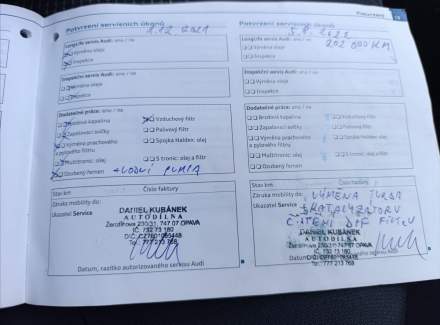 Potvrzení servisních úkonů
1.12.2021
LongLife servis Audi: ano / ne
Výměna oleje
Inspekce
Inspekční servis Audi: ano / ne
Výměna oleje
Inspekce
Dodatečné práce: ano / ne
Brzdová kapalina
Vzduchový filtr
Zapalovací svíčky
Palivový filtr
Výměna prachového a pylového filtru
Spojka Haldex: olej
Multitronic: olej
S tronic: olej a filtr
Ozubený řemen
+ VODNÍ PUMPA
Stav km:
Číslo faktury
Záruka mobility do:
Ukazatel Service
DANIEL KUBÁNEK
AUTODÍLNA
747 07 OPAVA
IČ: 732 73 180
Tel.: 777 213 768
Datum, razítko autorizovaného servisu Audi
Potvrzení
Potvrzení servisních úkonů
5.8.2022
LongLife servis Audi: ano / ne
202 000 KM
Výměna oleje
Inspekce
Inspekční servis Audi: ano / ne
Výměna oleje
Inspekce
Dodatečné práce: ano / ne
Brzdová kapalina
Vzduchový filtr
Zapalovací svíčky
Palivový filtr
Výměna prachového a pylového filtru
Spojka Haldex: olej
Multitronic: olej
S tronic: olej a filtr
Ozubený řemen
Stav km:
Číslo faktury
Záruka mobility do:
VÝMĚNA TURBA
Ukazatel Service
KATALYZÁTORU
ČIŠTĚNÍ DPF FILTRU
DANIEL KUBÁNEK
AUTODÍLNA
747 07 OPAVA
IČ: 732 73 180
Tel.: 777 213 768
Datum, razítko autorizovaného servisu Audi